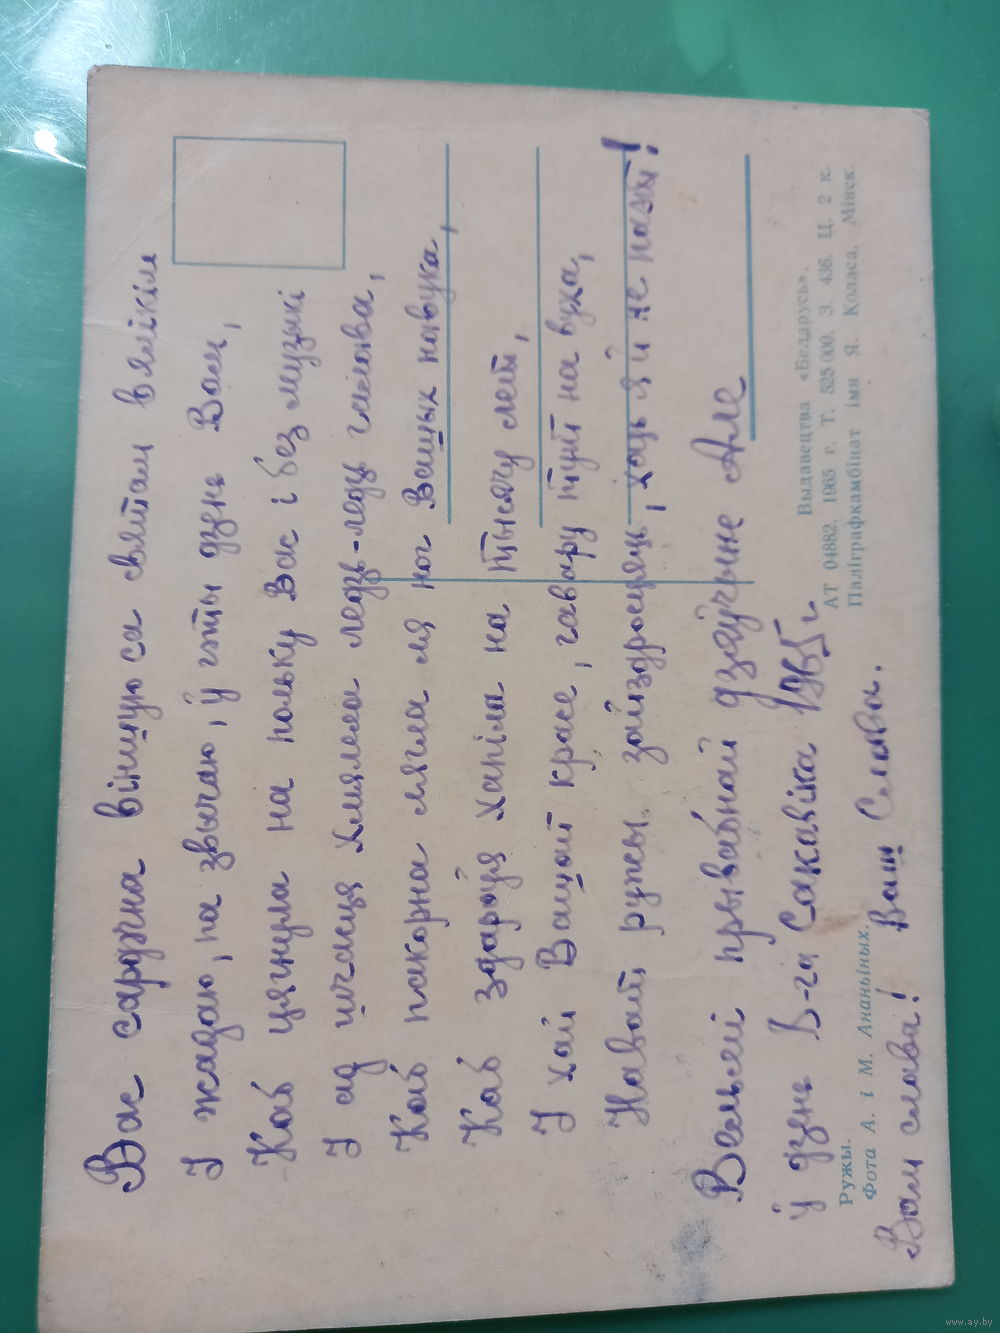 Вас сардэчна віншую са святам вялікім
І жадаю, па звычаю, ў гэты дзень Вам,
Каб цягнула на польку Вас і без музыкі
І ад шчасця хмялела ледзь-ледзь галава,
Каб пакорна лягла ля ног Вашых навука,
Каб здароўя хапіла на тысячу лет,
І хай Вашай красе, гавару тут на вуха,
Нават ружы зайздросцяць, хаць я й не паэт!
Вельмі прывабнай дзяўчыне Але
ў дзень 8-га Сакавіка 1965 г.
Вам слава! Ваш Слава.
Ружы.
Фота А. і М. Ананьіных.
Выдавецтва «Беларусь».
АТ 04882. 1965 г. Т. 525 000. З. 436. Ц. 2 к.
Паліграфкамбінат імя Я. Коласа, Мінск.
www.ay.by